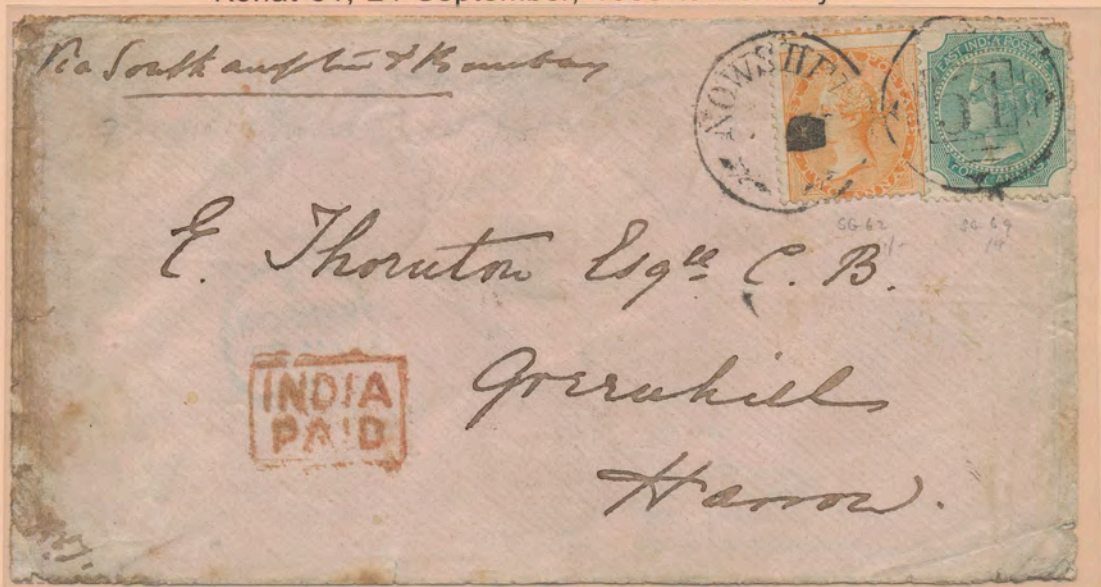 Via Southampton & Bombay
NOWSHE
EAST INDIA POSTAGE
TWO ANNAS
FOUR ANNAS
51
SG 62
SG 69
E. Thornton Esqre C. B.
Greenhill
Harrow.
INDIA
PAID